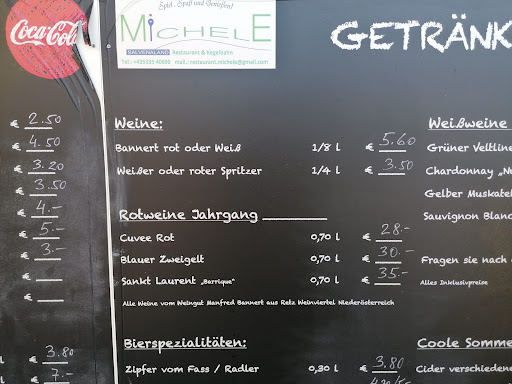 Coca-Cola
Spiel, Spaß und Genießen!
MicHelE
SALVENALAND Restaurant & Kegelbahn
Tel.: +435335 40699 mail.: restaurant.michele@gmail.com
GETRÄNK
€ 2.50
€ 4.50
€ 3.20
€ 3.50
€ 4.-
€ 5.-
€ 3.-
€
€
€ 3.80
l € 7.-
Weine:
Bannert rot oder Weiß 1/8 l € 5.60
Weißer oder roter Spritzer 1/4 l € 3.50
Rotweine Jahrgang
Cuvee Rot 0,70 l € 28.-
Blauer Zweigelt 0,70 l € 30.-
Sankt Laurent „Barrique" 0,70 l € 35.-
Alle Weine vom Weingut Manfred Bannert aus Retz Weinviertel Niederösterreich
Bierspezialitäten:
Zipfer vom Fass / Radler 0,30 l € 3.80
Weißweine
Grüner Veltline
Chardonnay „Nu
Gelber Muskatel
Sauvignon Blanc
Fragen sie nach
Alles Inklusivpreise
Coole Somme
Cider verschiedene